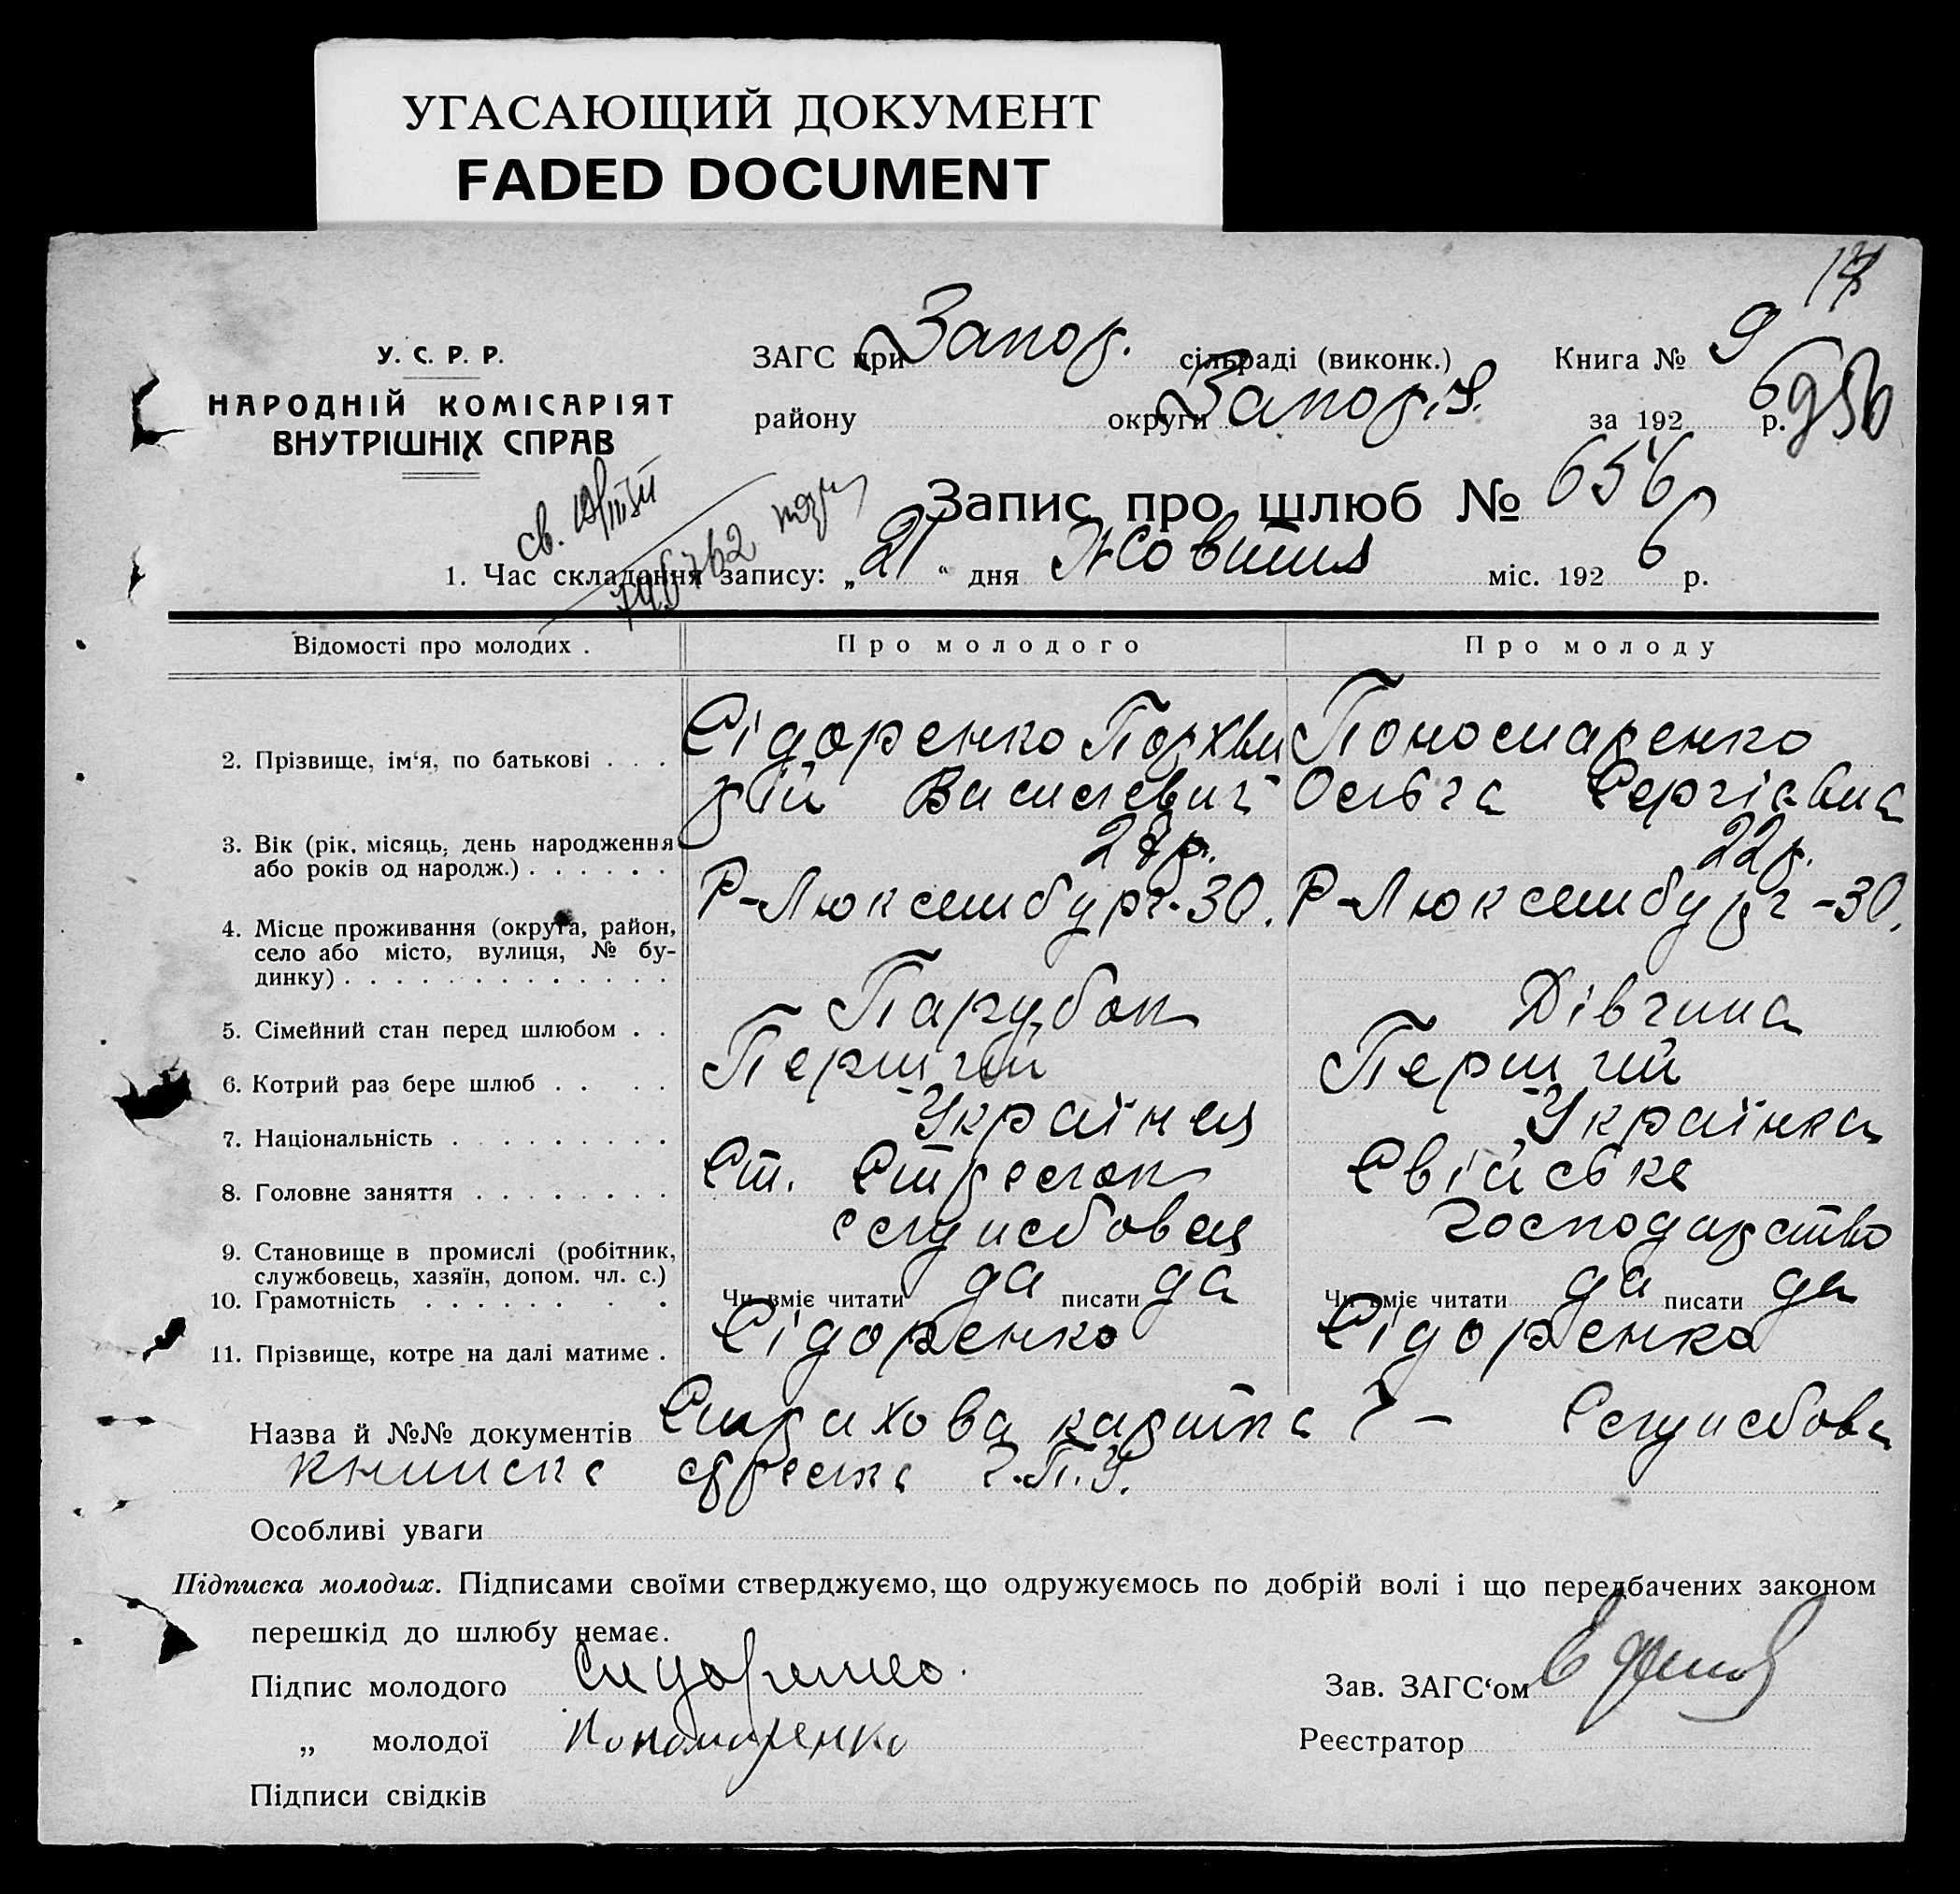 УГАСАЮЩИЙ ДОКУМЕНТ
FADED DOCUMENT
У. С. Р. Р.
НАРОДНІЙ КОМІСАРІЯТ
ВНУТРІШНІХ СПРАВ
ЗАГС при Запор. сільраді (виконк.) Книга № 9
району округи Запоріз. за 1926 р.
Запис про шлюб № 656
1. Час складання запису: „21“ дня Жовтня міс. 1926 р.
Відомості про молодих. Про молодого Про молоду
2. Прізвище, ім‘я, по батькові . . . Сідоренко Порхви Пономаренко
рій Василевич Ольга Сергієвна
3. Вік (рік, місяць, день народження 22р.
або років од народж.) . . . . . .
Р-Люксембург-30. Р-Люксембург-30.
4. Місце проживання (округа, район,
село або місто, вулиця, № бу-
динку) . . . . . . . . . . . . .
5. Сімейний стан перед шлюбом . . Парубок Дівчина
6. Котрий раз бере шлюб . . . . Перший Перший
7. Національність . . . . . . . . . Українец Українка
8. Головне заняття . . . . . . . . Ст. Стрелок Свійське
служсбовец господарство
9. Становище в промислі (робітник,
службовець, хазяїн, допом. чл. с.)
10. Грамотність . . . . . . . . Чи вміє читати да писати да Чи вміє читати да писати да
11. Прізвище, котре на далі матиме . Сідоренко Сідоренко
Назва й №№ документів Страхова картка Служсбова
книжка Г.П.У.
Особливі уваги
Підписка молодих. Підписами своїми стверджуємо, що одружуємось по добрій волі і що передбачених законом
перешкід до шлюбу немає.
Підпис молодого Сидоренко. Зав. ЗАГС‘ом
„ молодої Пономаренко Реєстратор
Підписи свідків